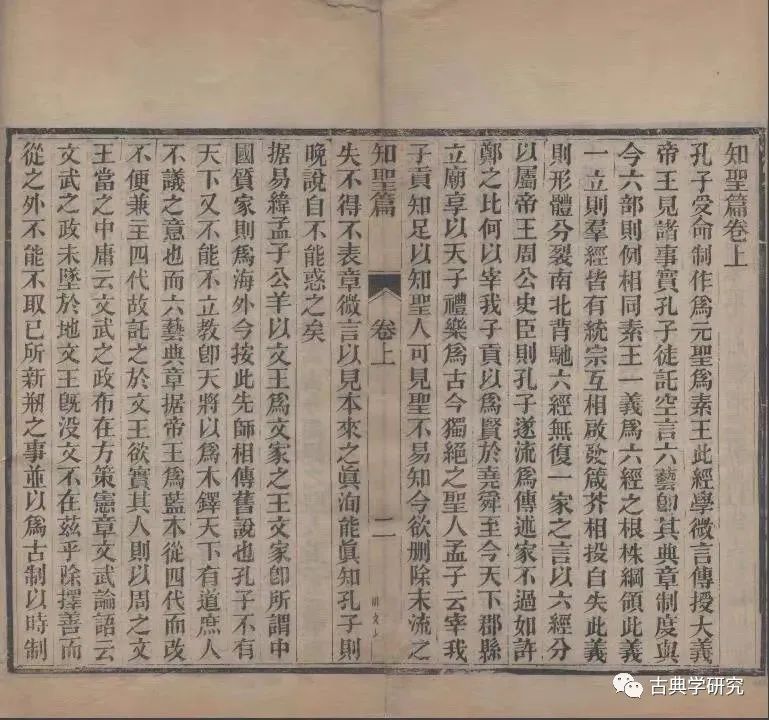 知聖篇卷上
孔子受命制作爲元聖爲素王此經學微言傳授大義
帝王見諸事實孔子徒託空言六藝卽其典章制度與
今六部則例相同素王一義爲六經之根株綱領此義
一立則羣經皆有統宗互相啟發箴芥相投自失此義
則形體分裂南北背馳六經無復一家之言以六經分
以屬帝王周公史臣則孔子遂流爲傳述家不過如許
鄭之比何以宰我子貢以爲賢於堯舜至今天下郡縣
立廟享以天子禮樂爲古今獨絕之聖人孟子云宰我
子貢知足以知聖人可見聖不易知今欲删除末流之
失不得不表章微言以見本來之眞洵能眞知孔子則
晚說自不能惑之矣
知聖篇
卷上
二
据易緯孟子公羊以文王爲文家之王文家卽所謂中
國質家則爲海外今按此先師相傳舊說也孔子不有
天下又不能不立教卽天將以爲木鐸天下有道庶人
不議之意也而六藝典章据帝王爲藍本從四代而改
不便兼主四代故託之於文王欲實其人則以周之文
王當之中庸云文武之政布在方策憲章文武論語云
文武之政未墜於地文王旣没文不在兹乎除擇善而
從之外不能不取已所新刱之事並以爲古制以時制
古典学研究